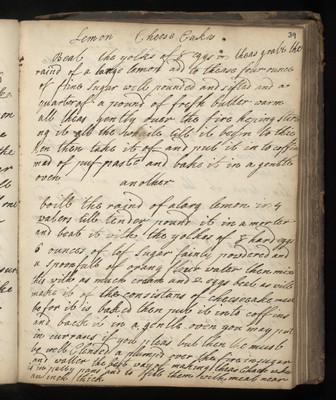 39
Lemon Cheese Cakes
Beat the yolks of 8 eggs in theas grate the
raind of a large lemon ad to thease four ounces
of fine sugar well pounded and sifted and a
quarter of a pound of fresh butter warm
all theas gently over the fire keeping stiring
ng it all the while till it begin to thic
ken then take it of and put it in to coffins
mad of puf paste and bake it in a gentle
oven
another
boile the raind of a larg lemon in 4
waters till tender pound it in a morter
and beat it with the yolkes of 8 hard eggs
6 ounces of lof sugar fainly powdered and
a spoonfull of orang flour water then mix
this with as much cream and eggs beat as will
make it of the consistans of cheesecake meat
befor it is baked then put it into coffins
and back it in a gentle oven you may put
in currans if you pleas but then the must
be well clensed a plumped over the fire in sugar
and watter the best way making theas
is in patty pans and to fill them with meat near
an inch thick